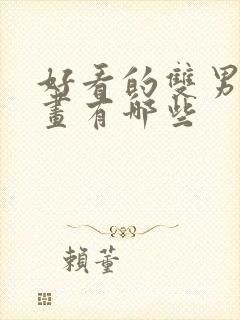 好看的雙男
畫有哪些
賴董